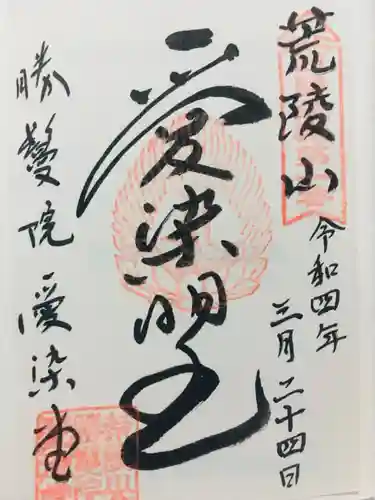 荒陵山
令和四年
三月二十四日
愛染明王
勝鬘院愛染堂